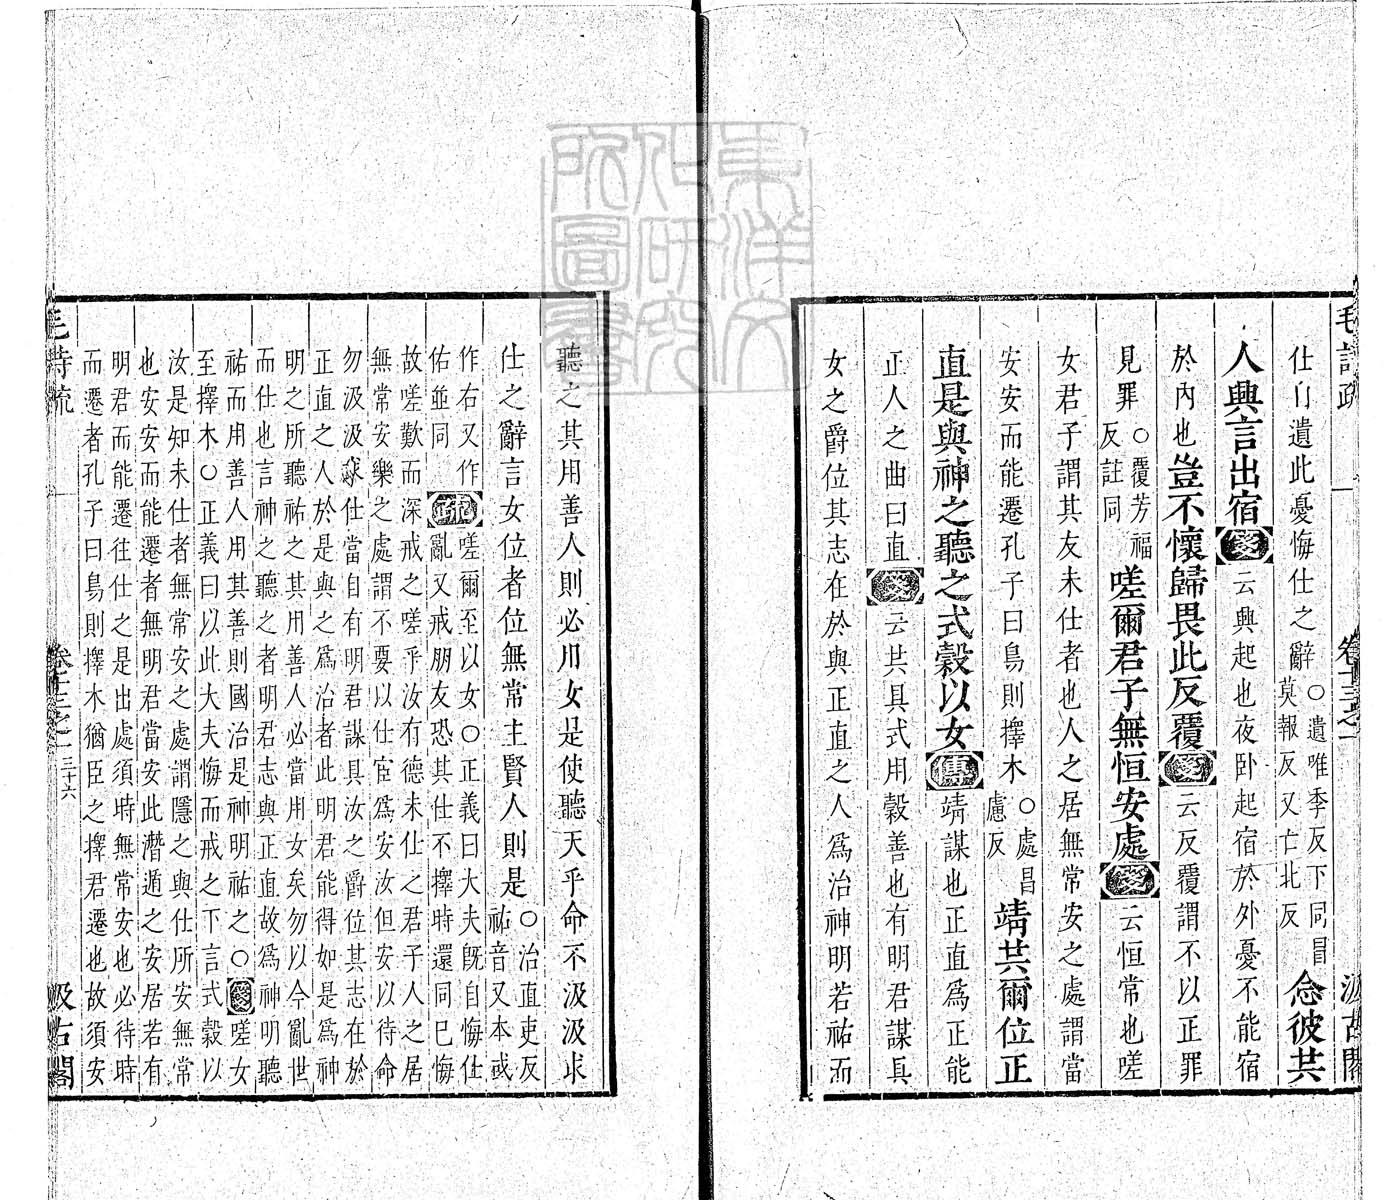 毛詩疏 卷十三之一 汲古閣
仕自遺此憂悔仕之辭○遺唯季反下同冒莫報反又亡北反念彼共
人興言出宿箋云興起也夜臥起宿於外憂不能宿
於內也豈不懷歸畏此反覆箋云反覆謂不以正罪
見罪○覆芳福反註同嗟爾君子無恒安處箋云恒常也嗟
女君子謂其友未仕者也人之居無常安之處謂當
安安而能遷孔子曰鳥則擇木○處昌慮反靖共爾位正
直是與神之聽之式穀以女傳靖謀也正直為正能
正人之曲曰直箋云共具式用穀善也有明君謀具
女之爵位其志在於與正直之人為治神明若祐而
聽之其用善人則必用女是使聽天乎命不汲汲求
仕之辭言女位者位無常主賢人則是○治直吏反祐音又本或
作右又作佑並同疏嗟爾至以女○正義曰大夫既自悔仕
亂又戒朋友恐其仕不擇時還同已悔
故嗟歎而深戒之嗟乎汝有德未仕之君子人之居
無常安樂之處謂不要以仕宦為安汝但安以待命
勿汲汲求仕當自有明君謀具汝之爵位其志在於
正直之人於是與之為治者此明君能得如是為神
明之所聽祐之其用善人必當用女矣勿以今亂世
而仕也言神之聽之者明君志與正直故為神明聽
祐而用善人用其善則國治是神明祐之○箋嗟女
至擇木○正義曰以此大夫悔而戒之下言式穀以
汝是知未仕者無常安之處謂隱之與仕所安無常
也安安而能遷者無明君當安此潛遁之安居若有
明君而能遷往仕之是出處須時無常安也必待時
而遷者孔子曰鳥則擇木猶臣之擇君遷也故須安
毛詩疏 卷十三之一 三十六 汲古閣
東洋文化研究所圖書